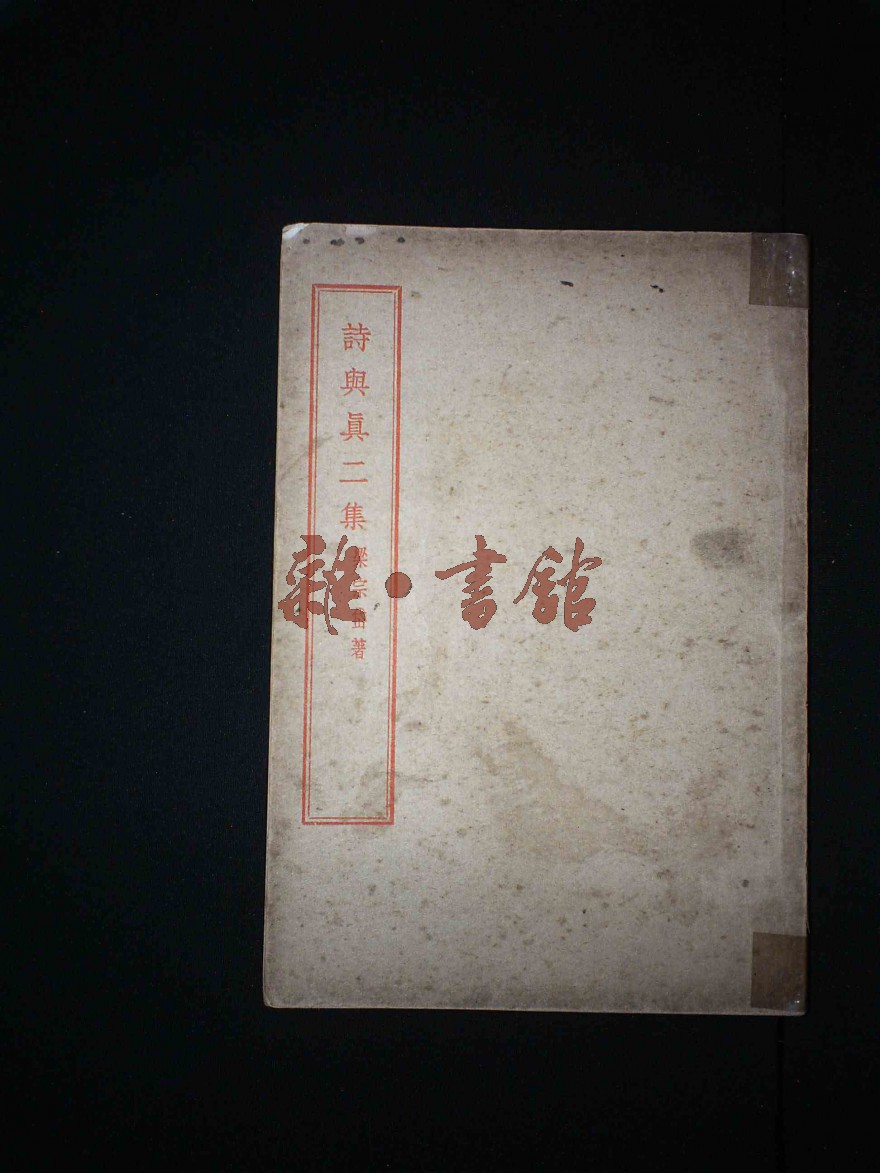 詩與眞二集 梁宗岱著
雜·書館